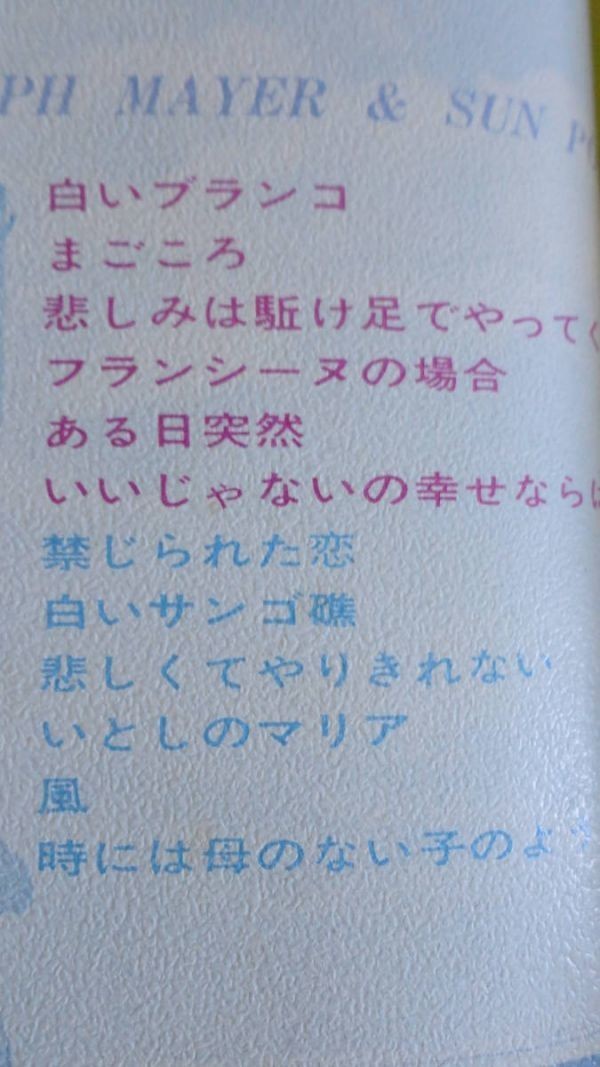 PH MAYER & SUN P
白いブランコ
まごころ
悲しみは駈け足でやってく
フランシーヌの場合
ある日突然
いいじゃないの幸せならば
禁じられた恋
白いサンゴ礁
悲しくてやりきれない
いとしのマリア
風
時には母のない子のよう